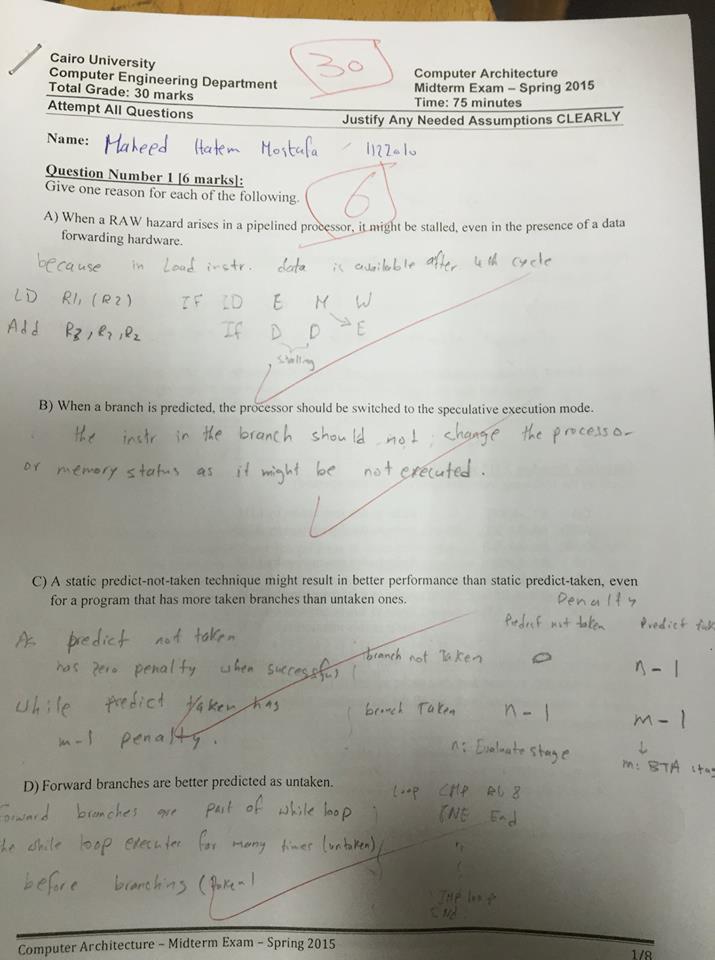 Cairo University
Computer Engineering Department
Total Grade: 30 marks
Attempt All Questions
30
Computer Architecture
Midterm Exam – Spring 2015
Time: 75 minutes
Justify Any Needed Assumptions CLEARLY
Name: Maheed Hatem Mostafa
Question Number 1 [6 marks]:
Give one reason for each of the following.
6
A) When a RAW hazard arises in a pipelined processor, it might be stalled, even in the presence of a data
forwarding hardware.
because in Load instr. data is available after 4th cycle
LD R1, (R2) IF ID E M W
Add R3, R1, R2 IF D D E
stalling
B) When a branch is predicted, the processor should be switched to the speculative execution mode.
the instr in the branch should not change the processor
or memory status as it might be not executed.
C) A static predict-not-taken technique might result in better performance than static predict-taken, even
for a program that has more taken branches than untaken ones.
Penalty
Predict not taken Predict
As predict not taken
has zero penalty when successful branch not Taken 0 n-1
while predict taken has branch Taken n-1 m-1
m-1 penalty.
n: Evaluate stage
m: BTA
D) Forward branches are better predicted as untaken.
Loop CMP 8
JNE End
branches are part of while loop
while loop executer for many times (untaken)
before branching (taken)
JMP loop
End
Computer Architecture – Midterm Exam – Spring 2015
1/8